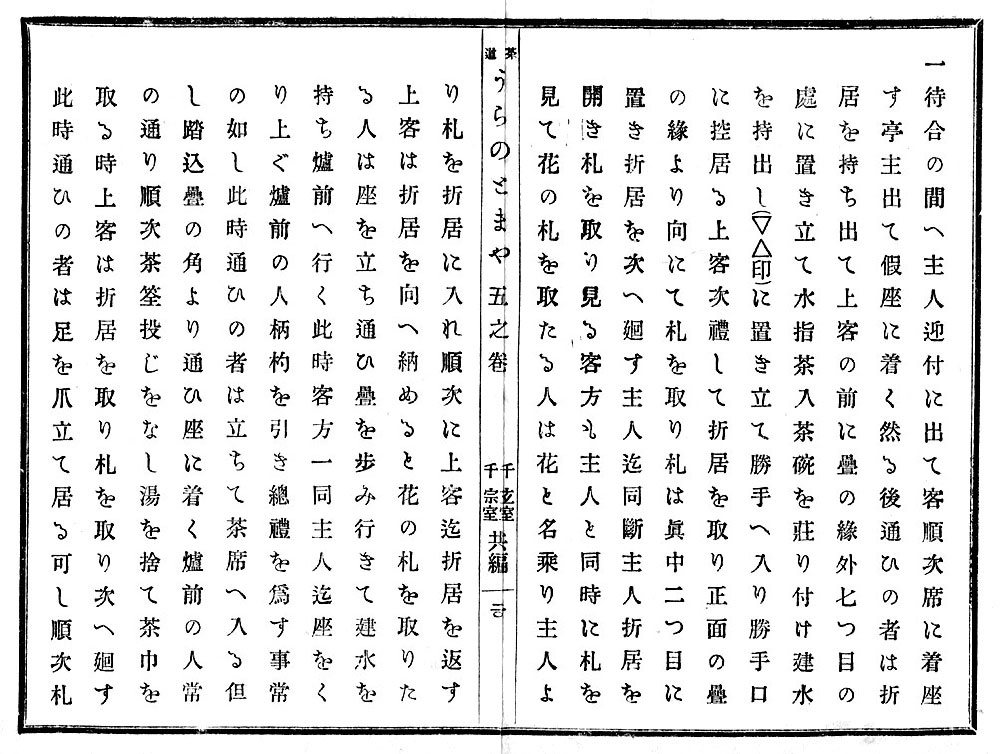 一待合の間へ主人迎付に出て客順次席に着座
す亭主出て假座に着く然る後通ひの者は折
居を持ち出て上客の前に疊の緣外七つ目の
處に置き立て水指茶入茶碗を莊り付け建水
を持出し(▽△印)に置き立て勝手へ入り勝手口
に控居る上客次禮して折居を取り正面の疊
の緣より向にて札を取り札は眞中二つ目に
置き折居を次へ廻す主人迄同斷主人折居を
開き札を取り見る客方も主人と同時に札を
見て花の札を取たる人は花と名乘り主人よ
茶道
うらのとまや 五之卷
千玄室
千宗室
共編
り札を折居に入れ順次に上客迄折居を返す
上客は折居を向へ納めると花の札を取りた
る人は座を立ち通ひ疊を步み行きて建水を
持ち爐前へ行く此時客方一同主人迄座をく
り上ぐ爐前の人柄杓を引き總禮を爲す事常
の如し此時通ひの者は立ちて茶席へ入る但
し踏込疊の角より通ひ座に着く爐前の人常
の通り順次茶筌投じをなし湯を捨て茶巾を
取る時上客は折居を取り札を取り次へ廻す
此時通ひの者は足を爪立て居る可し順次札